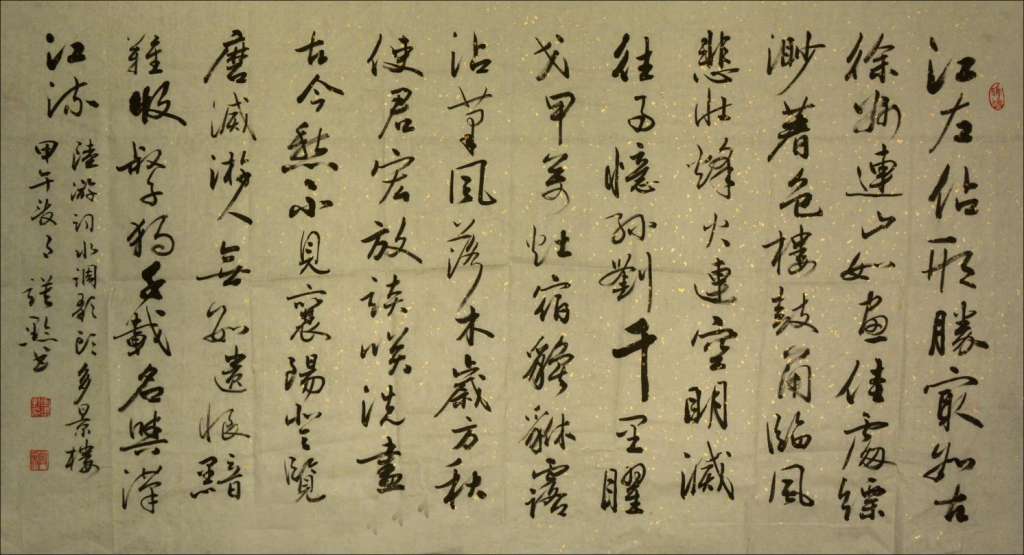 江左佔形勝冣數古
徐州連山如畫佳處縹
渺著危樓鼓角臨風
悲壯烽火連空明滅
往事憶孫劉千里曜
戈甲萬灶宿貔貅露
沾草風落木歲方秋
使君宏放談笑洗盡
古今愁不見襄陽登覽
磨滅游人無數遺恨黯
難收叔子獨千載名與漢
江流
陸游詞水調歌頭多景樓
甲午 月 書